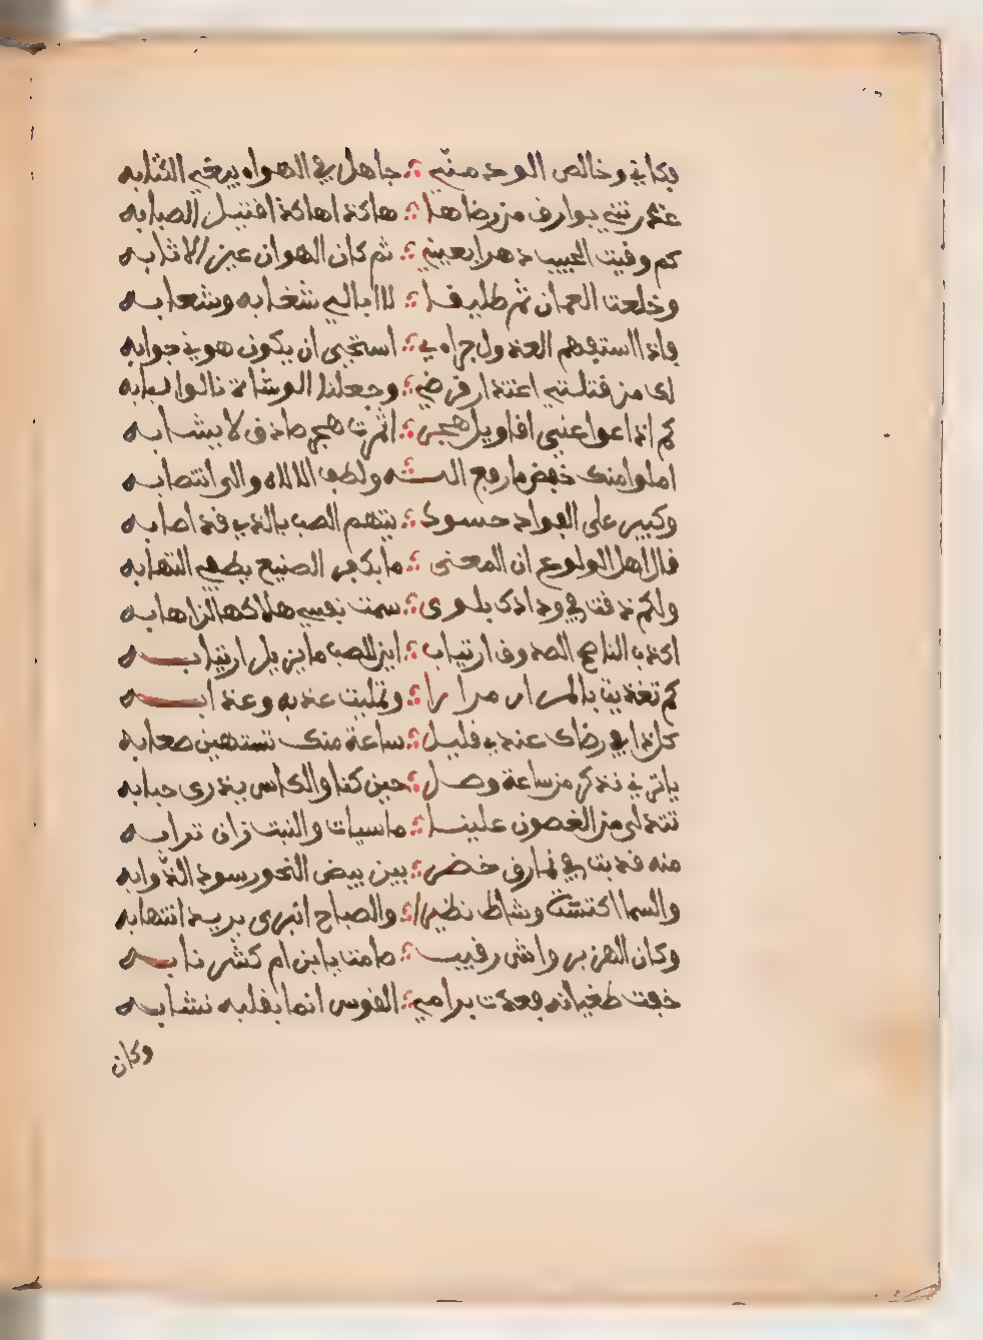 فكاني وخالص الود مني ؛ جاهل في الهواه يبغي الكتابه
عذرتني بوارف من رضاها ؛ هاكذا هاكذا افتيل الصبابه
كم وفيت الحبيب دهرا بعيني ؛ ثم كان الهوان عين الاثابه
وخلعت العمان ثم طليفا ؛ لاابالي شغابه وشعابه
فاذا استفهم العذول جراءي ؛ استحيى ان يكون هو في جوابه
اى من قتلتني اعتذار فرضي ؛ وجعلنا الوشاة نالوا ببابه
كم اذاعوا عني اقاويل هجر ؛ اثرت هجر صادق لا يشابه
املوا منك خفض ما رفع الله ولطف الالاه والى انتصابه
وكبير على الفواد حسود ؛ يتهم الصب بالذي قد اصابه
قال اهل الولوع ان المعنى ؛ ما بكفر الصنيع يطفي التهابه
ولكم ذقت في ودادك بلوى ؛ سمت نفسي هلاكها لزاهابه
اكذب الناصح الصدوق ارتياب ؛ اين للصب ما يزيل ارتيابه
كم تغذيت بالمرار مرارا ؛ وتمليت عذبه وعذابه
كل ذا في رضاك عندي قليل ؛ ساعة منك تستهين صعابه
ياترى في تذكر من ساعة وصل ؛ حين كنا والكاس يندرى حبابه
تتدلى من الغصون علينا ؛ ماسيات والنبت زان ترابه
منه قد بت في نمارق خضر ؛ بين بيض النحور سود الذوابه
والسما اكتست وشاط نظيرا ؛ والصباح انبرى يريد انتهابه
وكان الهزبر واش رقيب ؛ صامت يا بن ام كشر نابه
خفت طغيانه فعدت برامي ؛ القوس انما بقلبه نشابه
وكان